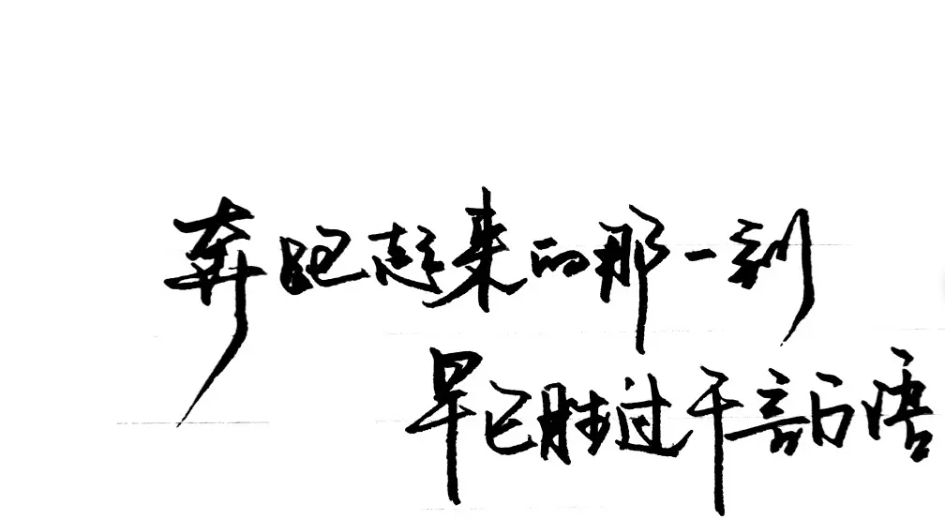 奔跑起来的那一刻
早已胜过千言万语